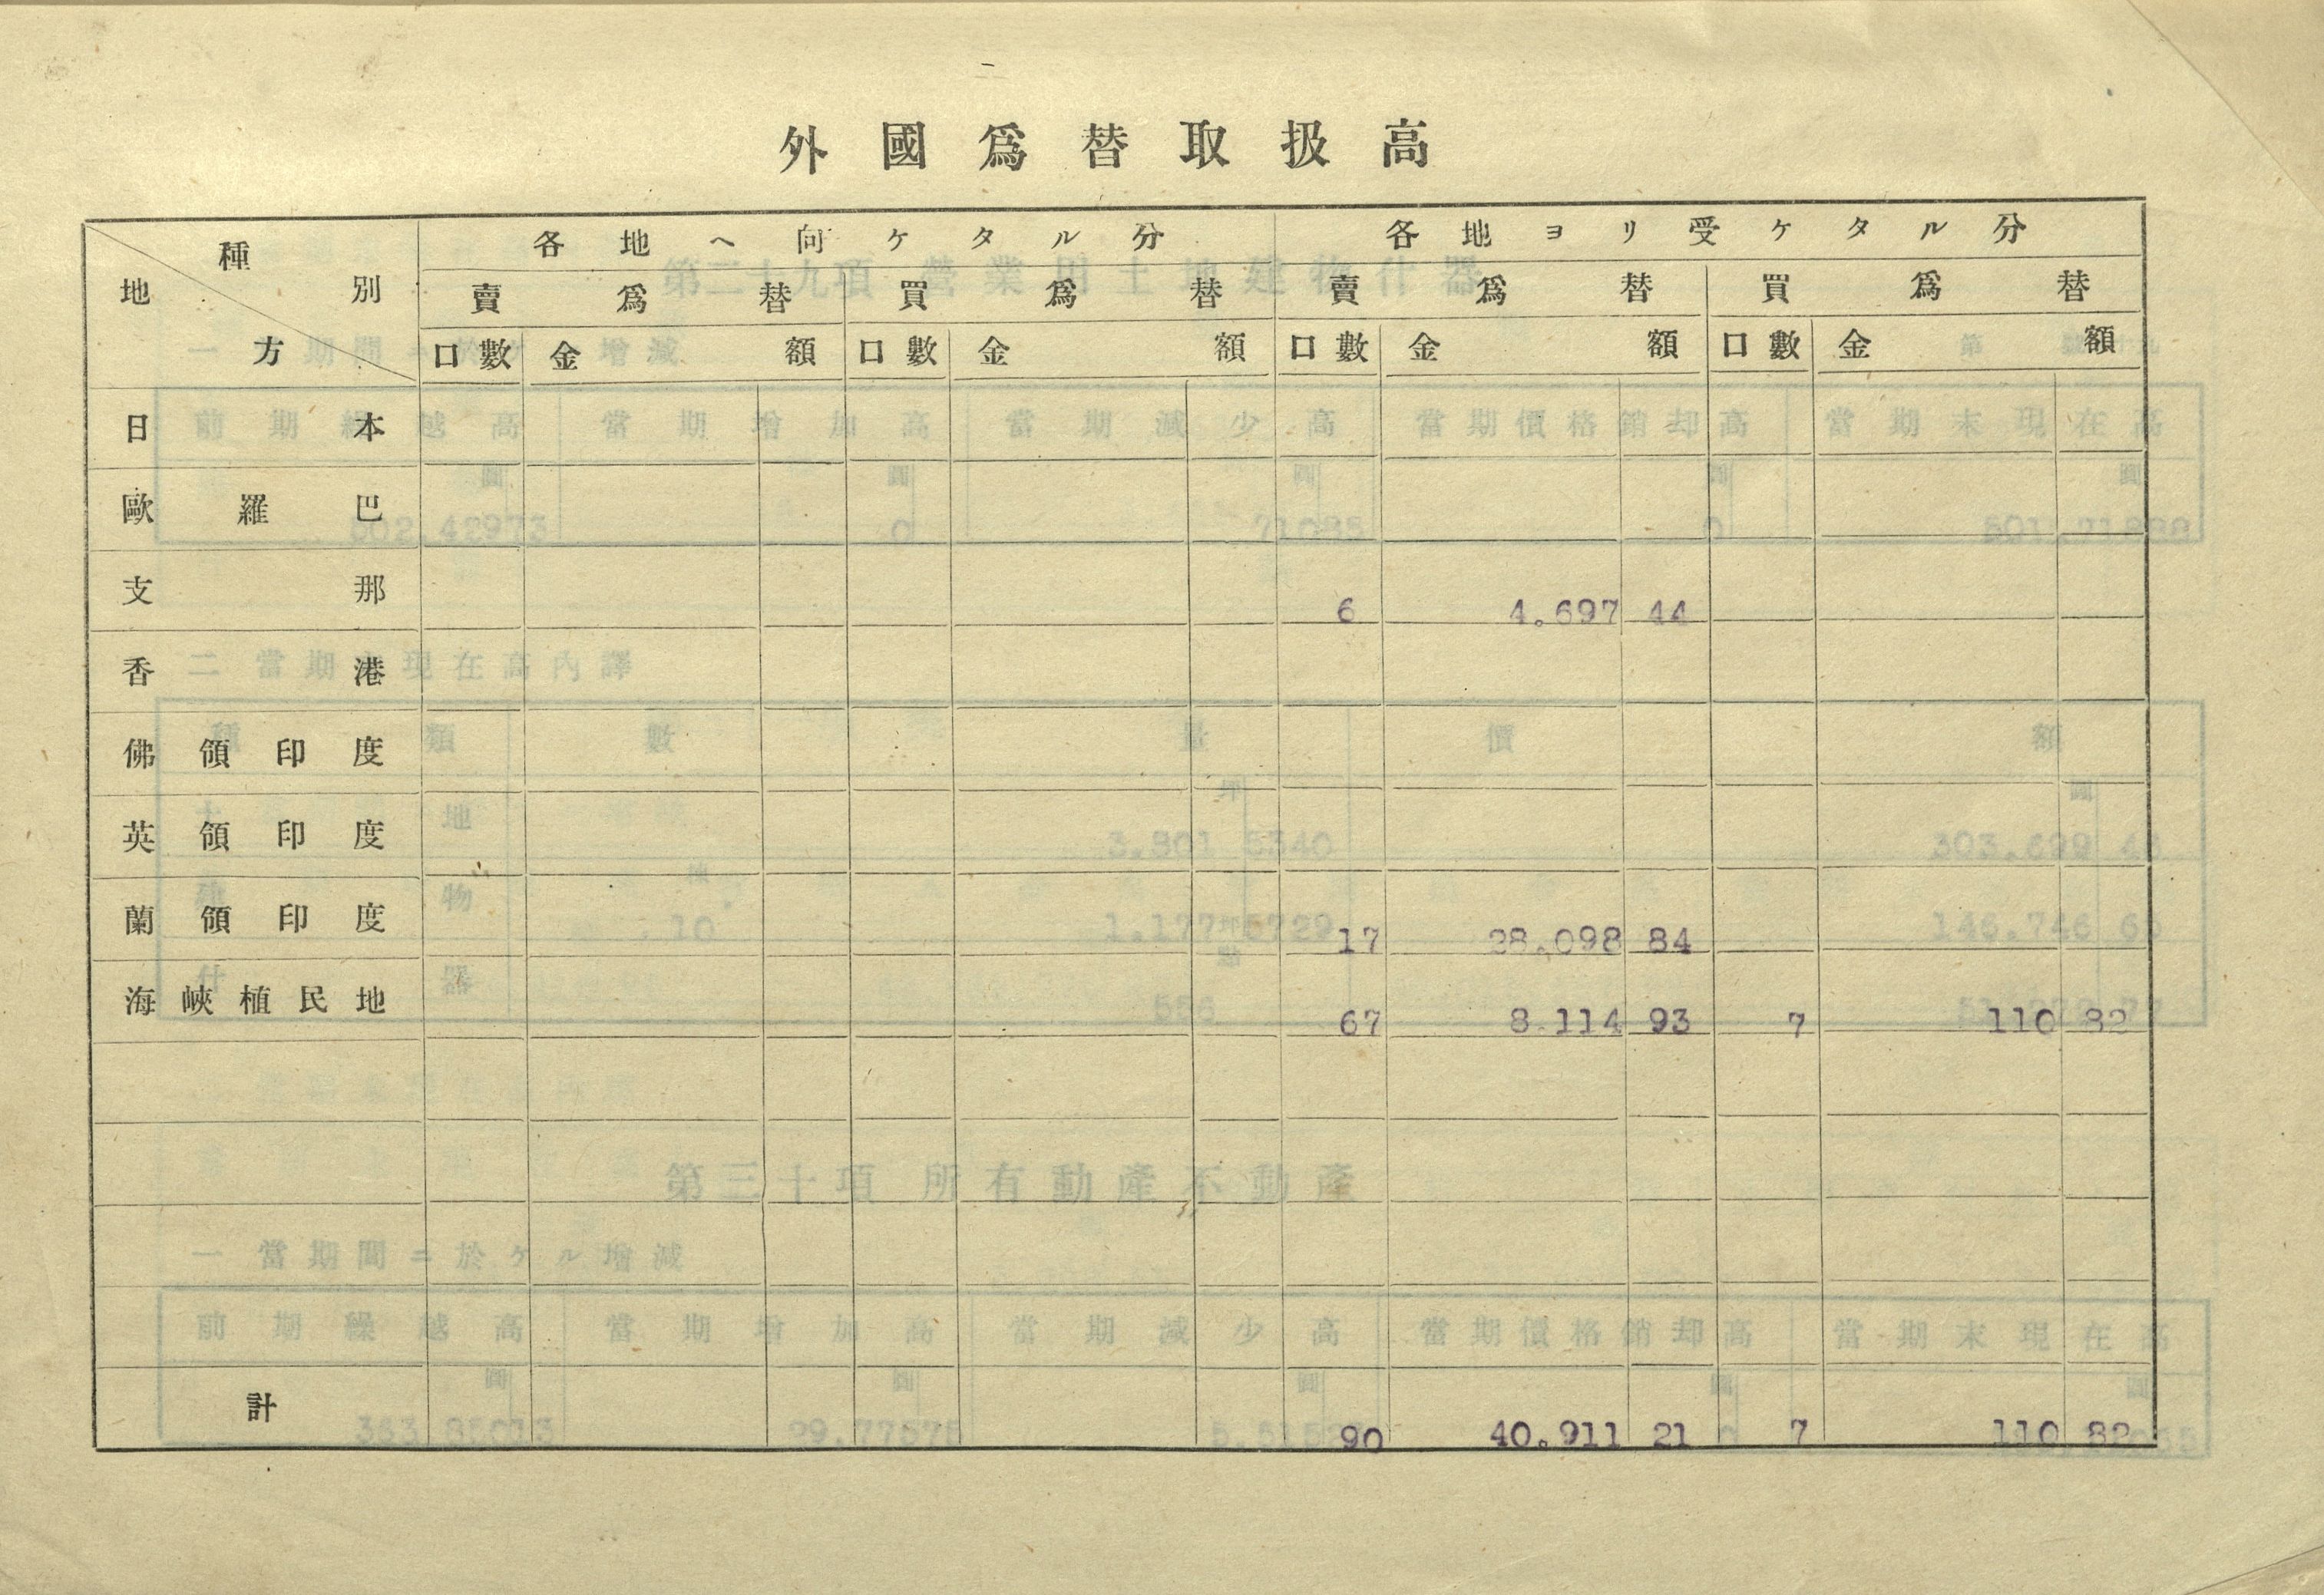 外國爲替取扱高
種別 地方 各地へ向ケタル分 各地ヨリ受ケタル分
賣爲替 買爲替 賣爲替 買爲替
口數 金額 口數 金額 口數 金額 口數 金額
日本
歐羅巴
支那 6 4.697 44
香港
佛領印度
英領印度
蘭領印度 17 28.098 84
海峽植民地 67 8.114 93 7 110 82
計 90 40.911 21 7 110 82